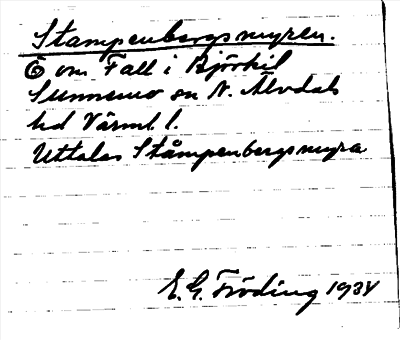 Stampenbergsmyren.
Ö om Fall i Björkil
Sunnemo sn N. Älvdals
hd Värml. l.
Uttalas Ståmpenbergsmyra
E. G. Fröding 1934